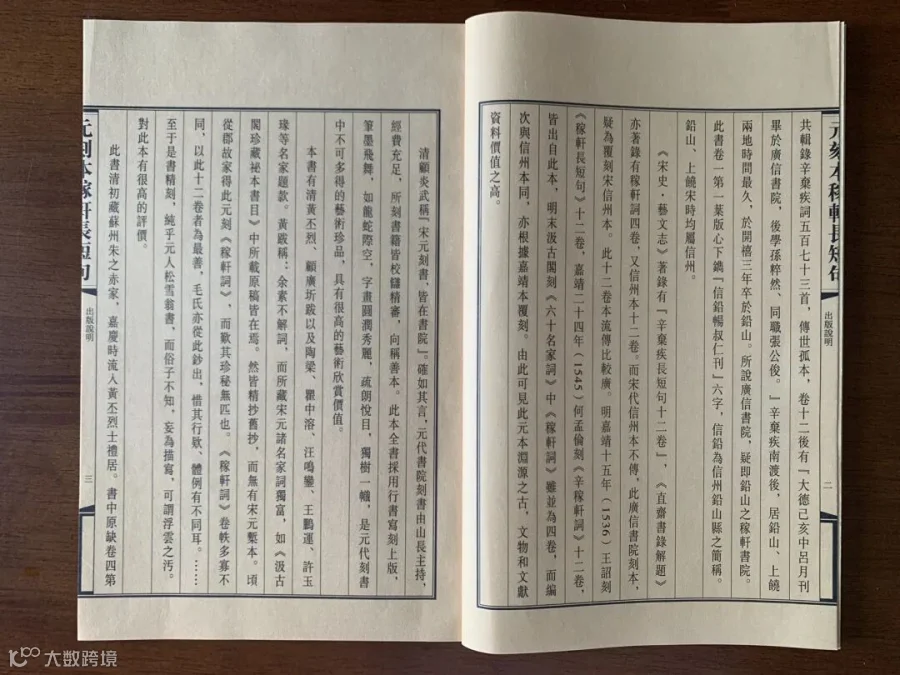 元刻本稼軒長短句
出版說明
二
共輯錄辛棄疾詞五百七十三首，傳世孤本，卷十二後有『大德己亥中呂月刊
畢於廣信書院，後學孫粹然、同職張公俊。』辛棄疾南渡後，居鉛山、上饒
兩地時間最久，於開禧三年卒於鉛山。所說廣信書院，疑即鉛山之稼軒書院。
此書卷一第一葉版心下鐫『信鉛暢叔仁刊』六字，信鉛為信州鉛山縣之簡稱。
鉛山、上饒宋時均屬信州。
《宋史·藝文志》著錄有『辛棄疾長短句十二卷』，《直齋書錄解題》
亦著錄有稼軒詞四卷，又信州本十二卷。而宋代信州本不傳，此廣信書院刻本，
疑為覆刻宋信州本。此十二卷本流傳比較廣。明嘉靖十五年（1536）王詔刻
《稼軒長短句》十二卷，嘉靖二十四年（1545）何孟倫刻《辛稼軒詞》十二卷，
皆出自此本，明末汲古閣刻《六十名家詞》中《稼軒詞》雖並為四卷，而編
次與信州本同，亦根據嘉靖本覆刻。由此可見此元本淵源之古，文物和文獻
資料價值之高。
清顧炎武稱『宋元刻書，皆在書院』。確如其言，元代書院刻書由山長主持，
經費充足，所刻書籍皆校讎精審，向稱善本。此本全書採用行書寫刻上版，
筆墨飛舞，如龍蛇際空，字畫圓潤秀麗，疏朗悅目，獨樹一幟，是元代刻書
中不可多得的藝術珍品，具有很高的藝術欣賞價值。
本書有清黃丕烈、顧廣圻跋以及陶梁、瞿中溶、汪鳴鑾、王鵬運、許玉
瑑等名家題款。黃跋稱：余素不解詞，而所藏宋元諸名家詞獨富，如《汲古
閣珍藏祕本書目》中所載原稿皆在焉。然皆精抄舊抄，而無有宋元槧本。頃
從郡故家得此元刻《稼軒詞》，而歎其珍秘無匹也。《稼軒詞》卷帙多寡不
同，以此十二卷者為最善，毛氏亦從此鈔出，惜其行欵、體例有不同耳。……
至于是書精刻，純乎元人松雪翁書，而俗子不知，妄為描寫，可謂浮雲之污。
對此本有很高的評價。
此書清初藏蘇州朱之赤家，嘉慶時流入黃丕烈士禮居。書中原缺卷四第
元刻本稼軒長短句
出版說明
三
大数跨境